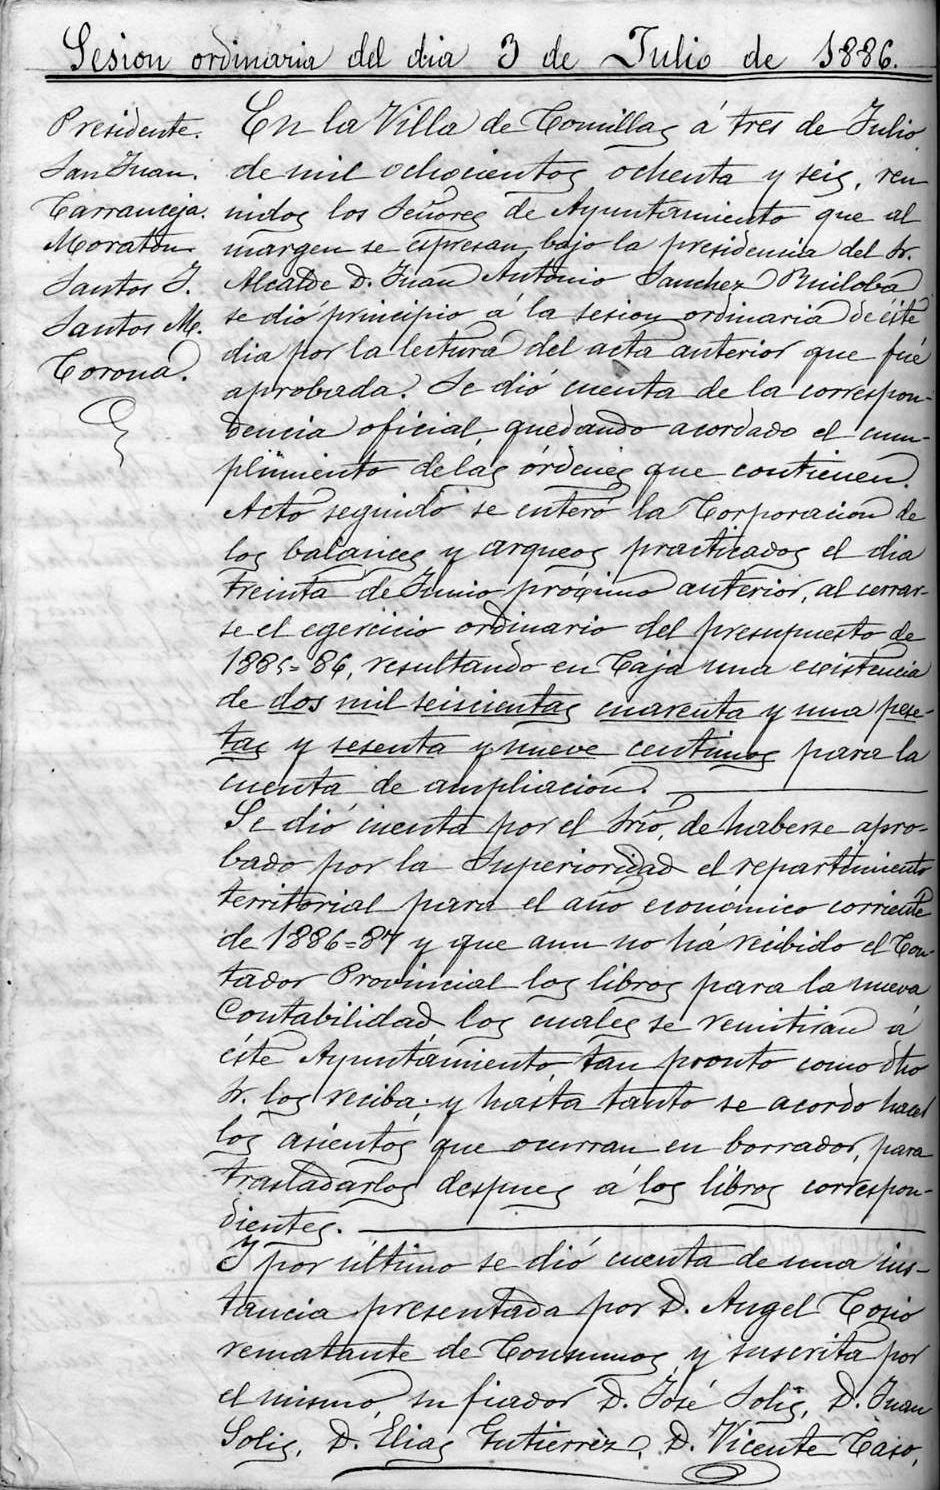 Sesion ordinaria del dia 3 de Julio de 1886.
Presidente.
San Juan.
Carranceja.
Moraton.
Santos J.
Santos M.
Corona.
En la Villa de Comillas á tres de Julio
de mil ochocientos ochenta y seis, reu
nidos los Señores de Ayuntamiento que al
margen se espresan, bajo la presidencia del Sr.
Alcalde D. Juan Antonio Sanchez Ruiloba
se dió principio á la sesion ordinaria de éste
dia por la lectura del acta anterior que fué
aprobada. Se dió cuenta de la correspon-
dencia oficial, quedando acordado el cum-
plimiento de las órdenes que contienen.
Acto seguido se enteró la Corporacion de
los balances y arqueos practicados el dia
treinta de Junio próximo anterior, al cerrar-
se el egercicio ordinario del presupuesto de
1885=86, resultando en Caja una existencia
de dos mil seiscientas cuarenta y una pese-
tas y sesenta y nueve centimos para la
cuenta de ampliacion.
Se dió cuenta por el Srio, de haberse apro-
bado por la Superioridad el repartimiento
territorial para el año económico corriente
de 1886=87 y que aun no há recibido el Con-
tador Provincial los libros para la nueva
Contabilidad los cuales se remitiran á
éste Ayuntamiento, tan pronto como dho
Sr. los reciba; y hasta tanto se acordo hacer
los asientos que ocurran en borrador, para
trasladarlos despues á los libros correspon-
dientes.
Y por último se dió cuenta de una ins-
tancia presentada por D. Angel Cosio
rematante de Consumos y suscrita por
el mismo, su fiador D. José Solis, D. Juan
Solis, D. Elias Gutierrez, D. Vicente Caso,